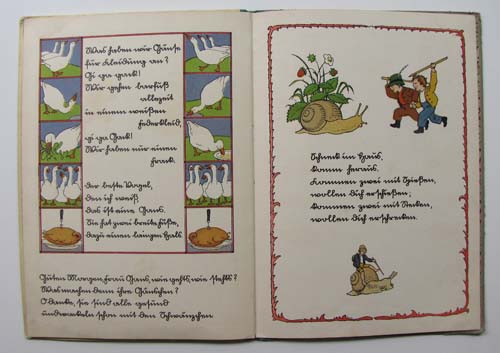 Was haben wir Gänse
für Kleidung an?
Gi ga gack!
Wir gehen barfuß
allezeit
in einem weißen
Federkleid,
gi ga Gack!
Wir haben nur einen
Frack.
Der beste Vogel,
den ich weiß,
das ist eine Gans.
Sie hat zwei breite Füße,
dazu einen langen Hals
Guten Morgen, Frau Gans, wie gehts, wie stehts?
Was machen denn ihre Gänschen?
O danke, sie sind alle gesund
und wackeln schon mit den Schwänzchen
Schneck im Haus,
komm heraus,
kommen zwei mit Spießen,
wollen dich erschießen;
kommen zwei mit Stecken,
wollen dich erschrecken.